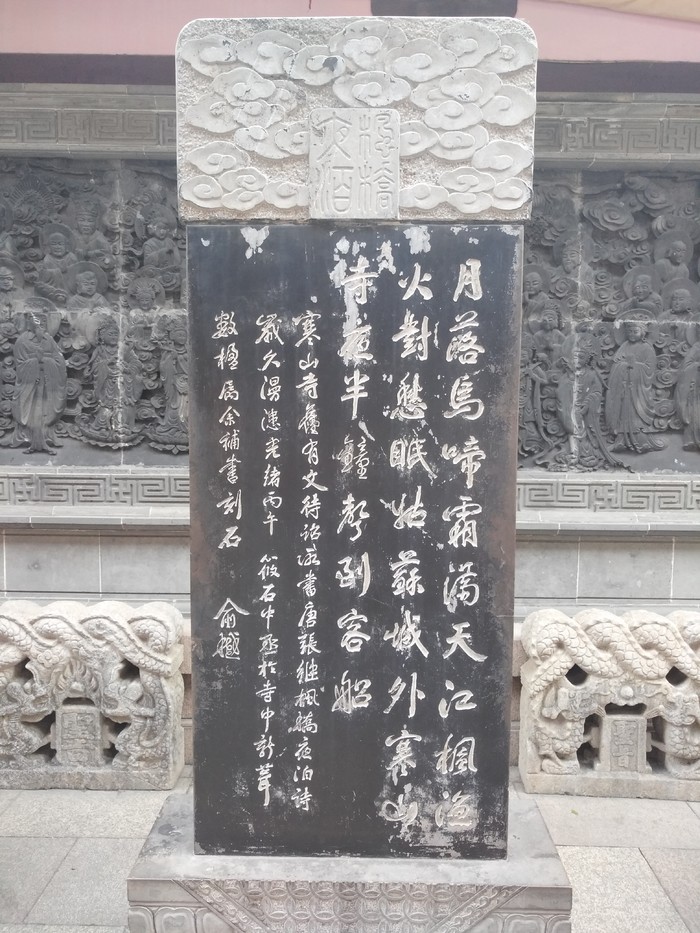 楓橋
夜泊
月落烏啼霜滿天江楓漁
火對愁眠姑蘇城外寒山
寺夜半鐘聲到客船
寒山寺舊有文待詔所書唐張繼楓橋夜泊詩
歲久漫漶光緒丙午 筱石中丞於寺中新葺
數楹屬余補書刻石 俞樾